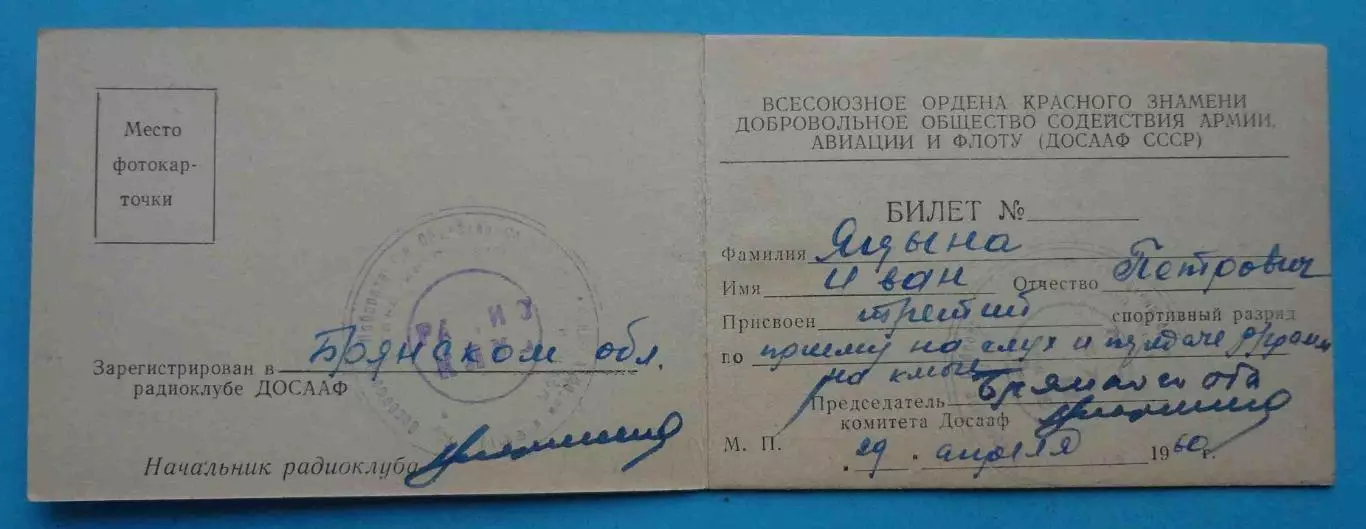 Место
фотокар-
точки
Зарегистрирован в Брянском обл.
радиоклубе ДОСААФ
Начальник радиоклуба
ВСЕСОЮЗНОЕ ОРДЕНА КРАСНОГО ЗНАМЕНИ
ДОБРОВОЛЬНОЕ ОБЩЕСТВО СОДЕЙСТВИЯ АРМИИ,
АВИАЦИИ И ФЛОТУ (ДОСААФ СССР)
БИЛЕТ №
Фамилия
Имя Иван Отчество Петрович
Присвоен третий спортивный разряд
по приему на слух и передаче
на
Председатель Брянского обл
комитета Досааф
М. П. 29 апреля 1960 г.